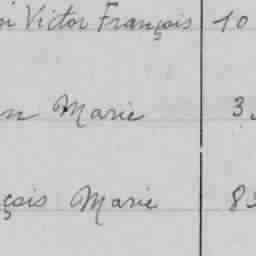 Victor François 10
Marie 3
çois Marie 8